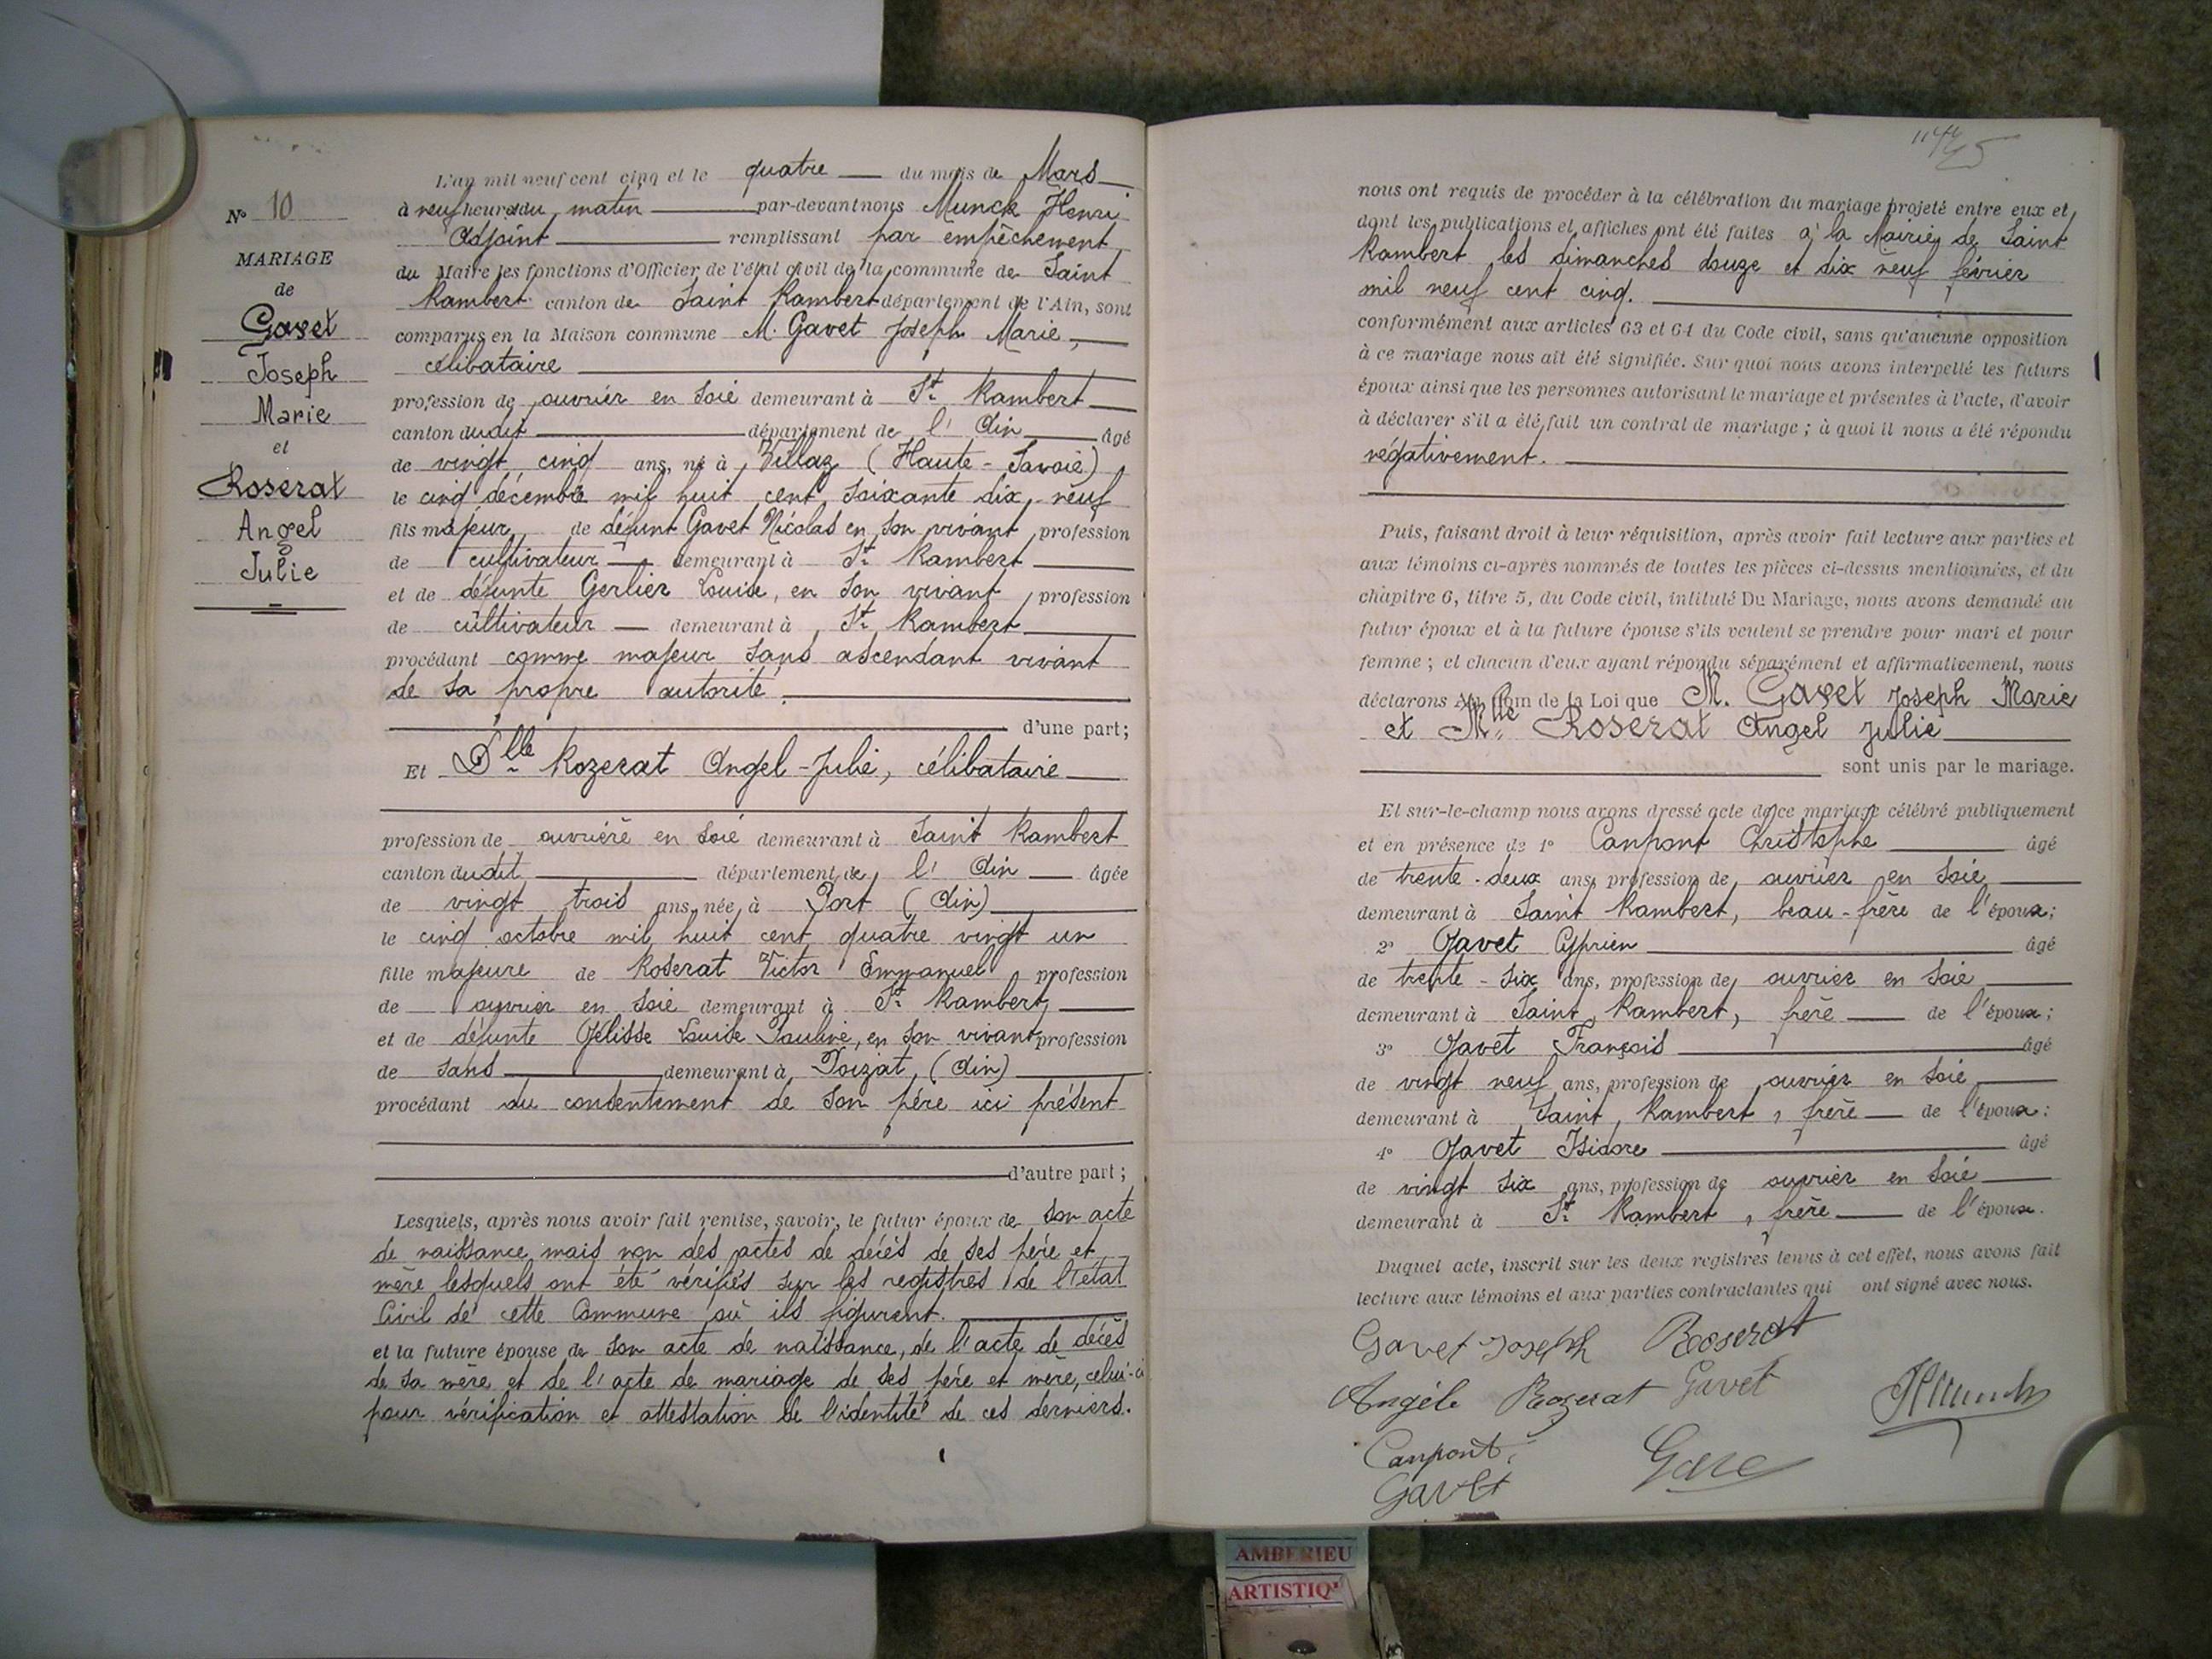 N° 10
MARIAGE
de
Gavet
Joseph
Marie
et
Roserat
Angel
Julie
L'an mil neuf cent cinq et le quatre du mois de Mars
à neuf heures du matin par-devant nous Munck Henri
Adjoint remplissant par empêchement
du Maire les fonctions d'Officier de l'état civil de la commune de Saint
Rambert canton de Saint Rambert département de l'Ain, sont
comparus en la Maison commune M. Gavet Joseph Marie,
célibataire
profession de ouvrier en soie demeurant à St Rambert
canton dudit département de l'Ain âgé
de vingt cinq ans, né à Villaz (Haute-Savoie)
le cinq décembre mil huit cent soixante dix neuf
fils majeur de défunt Gavet Nicolas en son vivant profession
de cultivateur demeurant à St Rambert
et de défunte Gerlier Louise, en son vivant profession
de cultivateur demeurant à St Rambert
procédant comme majeur sans ascendant vivant
de sa propre autorité.
d'une part;
Et Dlle Rozerat Angel-Julie, célibataire
profession de ouvrière en soie demeurant à Saint Rambert
canton dudit département de l'Ain âgée
de vingt trois ans, née à Port (Ain)
le cinq octobre mil huit cent quatre vingt un
fille majeure de Roserat Victor Emmanuel profession
de ouvrier en soie demeurant à St Rambert,
et de défunte Gélisse Louise Pauline, en son vivant profession
de sans demeurant à Poizat, (Ain)
procédant du consentement de son père ici présent
d'autre part;
Lesquels, après nous avoir fait remise, savoir, le futur époux de son acte
de naissance, mais non des actes de décès de ses père et
mère lesquels ont été vérifiés sur les registres de l'état
Civil de cette Commune où ils figurent.
et la future épouse de son acte de naissance, de l'acte de décès
de sa mère et de l'acte de mariage de ses père et mère, celui-ci
pour vérification et attestation de l'identité de ces derniers.
nous ont requis de procéder à la célébration du mariage projeté entre eux et
dont les publications et affiches ont été faites à la Mairie de Saint
Rambert les dimanches douze et dix neuf février
mil neuf cent cinq.
conformément aux articles 63 et 64 du Code civil, sans qu'aucune opposition
à ce mariage nous ait été signifiée. Sur quoi nous avons interpellé les futurs
époux ainsi que les personnes autorisant le mariage et présentes à l'acte, d'avoir
à déclarer s'il a été fait un contrat de mariage; à quoi il nous a été répondu
négativement.
Puis, faisant droit à leur réquisition, après avoir fait lecture aux parties et
aux témoins ci-après nommés de toutes les pièces ci-dessus mentionnées, et du
chapitre 6, titre 5, du Code civil, intitulé Du Mariage, nous avons demandé au
futur époux et à la future épouse s'ils veulent se prendre pour mari et pour
femme; et chacun d'eux ayant répondu séparément et affirmativement, nous
déclarons Au Nom de la Loi que M. Gavet Joseph Marie
et Mlle Roserat Angel Julie
sont unis par le mariage.
Et sur-le-champ nous avons dressé acte de ce mariage célébré publiquement
et en présence de 1° Canpont Christophe âgé
de trente-deux ans, profession de ouvrier en soie
demeurant à Saint Rambert, beau-frère de l'époux;
2° Gavet Cyprien âgé
de trente-six ans, profession de ouvrier en soie
demeurant à Saint Rambert, frère de l'époux;
3° Gavet François âgé
de vingt neuf ans, profession de ouvrier en soie
demeurant à Saint Rambert, frère de l'époux:
4° Gavet Isidore âgé
de vingt six ans, profession de ouvrier en soie
demeurant à St Rambert, frère de l'époux.
Duquel acte, inscrit sur les deux registres tenus à cet effet, nous avons fait
lecture aux témoins et aux parties contractantes qui ont signé avec nous.
Gavet Joseph Roserat
Angèle Rozerat Gavet
HMunck
Canpont
Gavet
AMBERIEU
ARTISTIQ